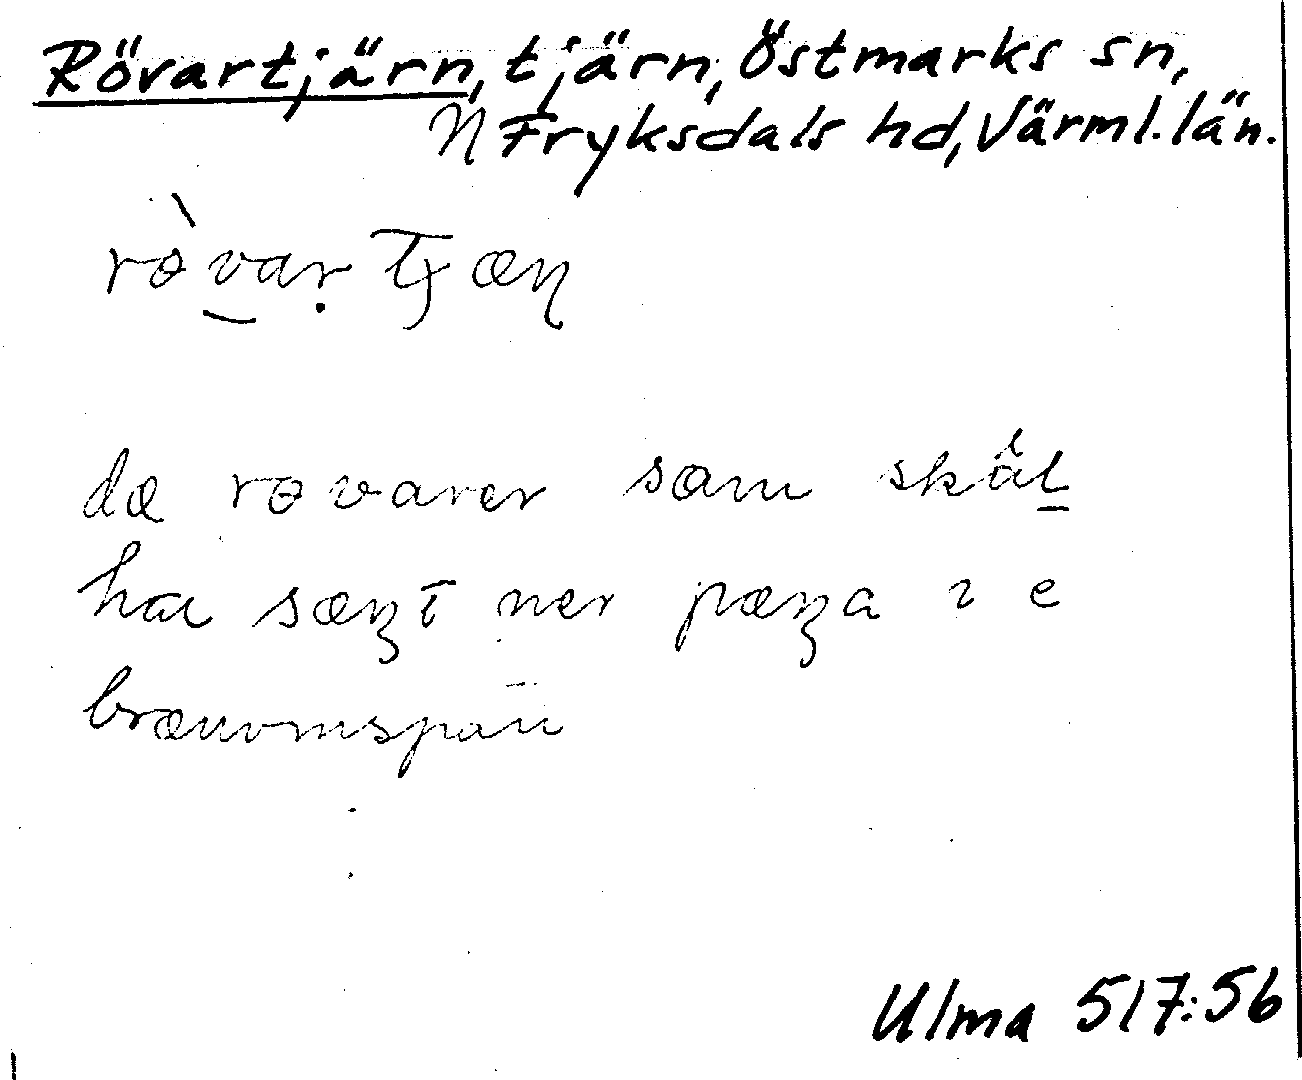 Rövartjärn, tjärn, Östmarks sn,
N Fryksdals hd, Värml. län.
rө̀var̤ tjæɳ
dæ rөvarer sɑm skɑ̂l
hɑ sæɳt ner pæɳa ı e
brænvınspan̄
Ulma 517:56